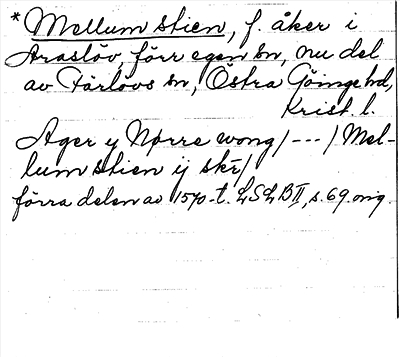 * Mellum stien, f. åker i
Araslöv, förr egen sn, nu del
av Färlövs sn, Östra Göinge hd,
Krist. l.
Ager y Nørre wong / --- / Mel-
lum stien ij skr /
förra delen av 1570-t. LSLB II, s. 69. orig.